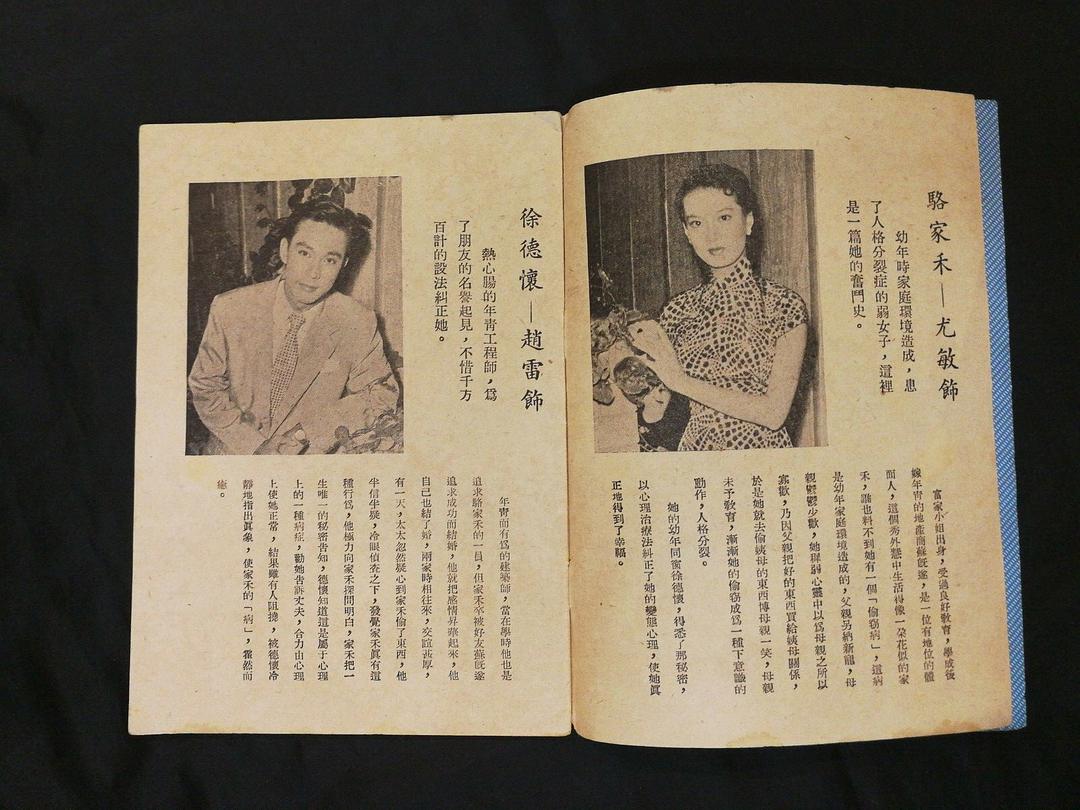 駱家禾—尤敏飾
幼年時家庭環境造成，患
了人格分裂症的弱女子，這裡
是一篇她的奮鬥史。
富家小姐出身，受過良好教育，學成後
嫁年靑的地產商蘇旣遂，是一位有地位的體
面人，這個秀外慧中生活得像一朵花似的家
禾，誰也料不到她有一個「偷窃病」，這病
是幼年家庭環境造成的，父親另納新寵，母
親鬱鬱少歡，她稺弱心靈中以爲母親之所以
寡歡，乃因父親把好的東西買給姨母關係，
於是她就去偷姨母的東西博母親一笑，母親
未予敎育，漸漸她的偷窃成爲一種下意識的
動作，人格分裂。
她的幼年同窗徐德懷，得悉了那秘密，
以心理治療法糾正了她的變態心理，使她眞
正地得到了幸福。
徐德懷—趙雷飾
熱心腸的年靑工程師，爲
了朋友的名譽起見，不惜千方
百計的設法糾正她。
年靑而有爲的建築師，當在學時他也是
追求駱家禾的一員，但家禾卒被好友蘇旣遂
追求成功而結婚，他就把感情昇華起來，他
自己也結了婚，兩家時相往來，交誼甚厚，
有一天，太太忽然疑心到家禾偷了東西，他
半信半疑，冷眼偵查之下，發覺家禾眞有這
種行爲，他極力向家禾探問明白，家禾把一
生唯一的秘密吿知，德懷知道這是屬于心理
上的一種病症，勸她吿訴丈夫，合力由心理
上使她正常，結果雖有人阻撓，被德懷冷
靜地指出眞象，使家禾的「病」，霍然而
癒。